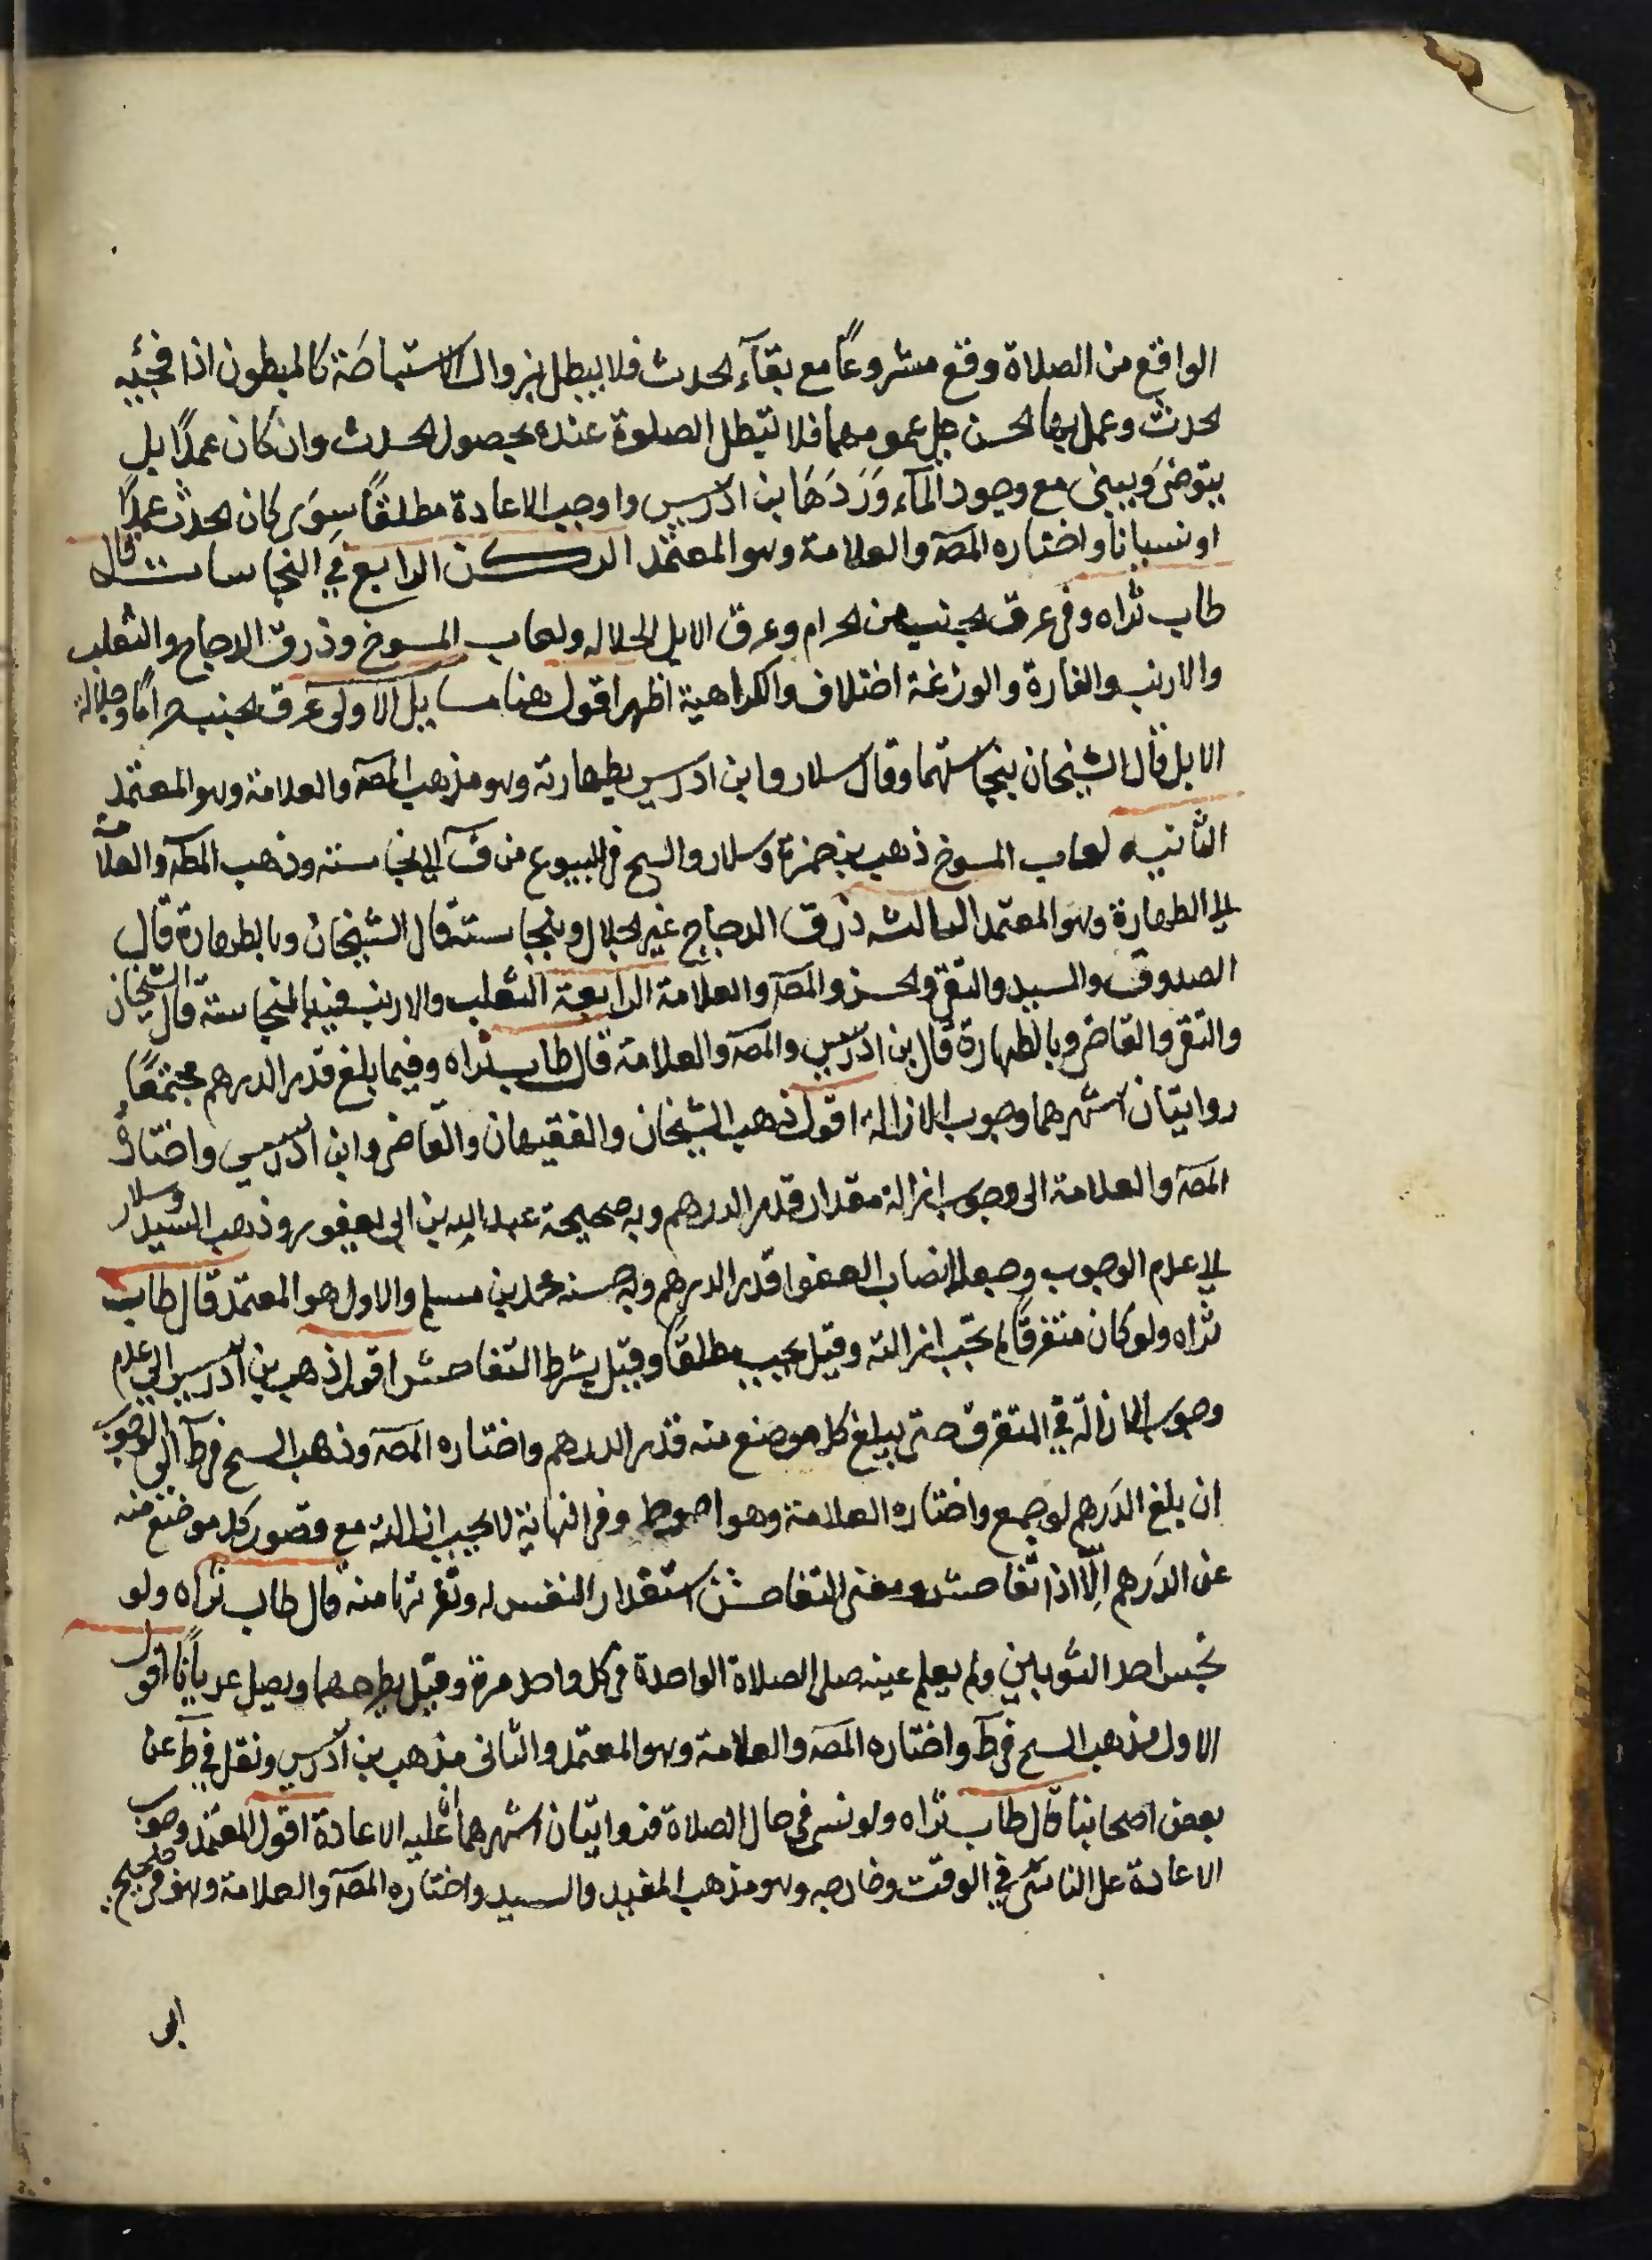 الواقع من الصلاة وقع مشروعًا مع بقآء الحدث فلا يبطل بزوال الاستباحَة كالمبطون اذا فجئه
الحدث وعمل بها الحسن على عمومها فلا تبطل الصلوة عنده بحصول الحدث وان كان عمدًا بل
يتوضى ويبنى مع وجود المآء وَرَدَهَا بن ادريس واوجب الاعادة مطلقًا سِوَى كان الحدث عمدًا
او نسيانا واختاره المصۤ والعلامة وهو المعتمد الركن الرابع في النجاسات قال
طاب ثراه وفى عرق الجنب من الحرام وعرق الابل الجلاله ولعاب المسوخ وذرق الدجاج والثعلب
والارنب والفارة والوزغة اختلاف والكراهية اظهر اقول هنا مسايل الاولى عرق الجنب حرامًا وجلالة
الابل قال الشيخان بنجاستهما وقال سلار وابن ادريس بطهارته وهو مذهب المصۤ والعلامة وهو المعتمد
الثانيه لعاب المسوخ ذهب بن حمزة وسلار والسح فى البيوع من فۤ الى نجاسته وذهب المصۤ والعلامة
الى الطهارة وهو المعتمد الثالثه ذرق الدجاج غير الجلال وبنجاسته قال الشيخان وبالطهارة قال
الصدوق والسيد والتقى والحسن والمصۤ والعلامة الرابعة الثعلب والارنب فبالنجاسة قال الشيخان
والتقى والقاضى وبالطهارة قال بن ادريس والمصۤ والعلامة قال طاب ثراه وفيما بلغ قدر الدرهم مجتمعًا
روايتان اشهرهما وجوب الازالة اقول ذهب الشيخان والفقيهان والقاضى وابن ادريس واختاره
المصۤ والعلامة الى وجوب ازالة مقدار قدر الدرهم وبه صحيحة عبد الله بن ابى يعفور وذهب السيد وسلار
الى عدم الوجوب وجعلا نصاب العفو قدر الدرهم وبه حسنه محمد بن مسلم والاول هو المعتمد قال طاب
ثراه ولو كان متفرقًا لم تجب ازالته وقيل يجب مطلقًا وقيل بشرط التفاحش اقول ذهب بن ادريس الى عدم
وجوب الازالة في المتفرق حتى يبلغ كل موضع منه قدر الدرهم واختاره المصۤ وذهب السح فى طۤ الى الوجوب
ان بلغ الدَرهم لو جمع واختاره العلامة وهو احوط وفى النهاية لا يجب ازالته مع قصور كل موضع منه
عن الدَرهم اِلّا اذا تفاحش ومعنى التفاحش استقدار النفس له ونفرتها منه قال طاب ثراه ولو
نجس احد الثوبين ولم يعلم عينه صلى الصلاة الواحدة فى كل واحد مرة وقيل يطرحهما ويصلى عريانًا اقول
الاول مذهب السح فى طۤ واختاره المصۤ والعلامة وهو المعتمد والثانى مذهب بن ادريس ونقل في طۤ عن
بعض اصحابنا قال طاب ثراه ولو نسى فى حال الصلاة فروايتان اشهرهما ان عليه الاعادة اقول المعتمد وجوب
الاعادة على الناسى في الوقت وخارجه وهو مذهب المفيد والسيد واختاره المصۤ والعلامة وهو فى صحيح
ابى